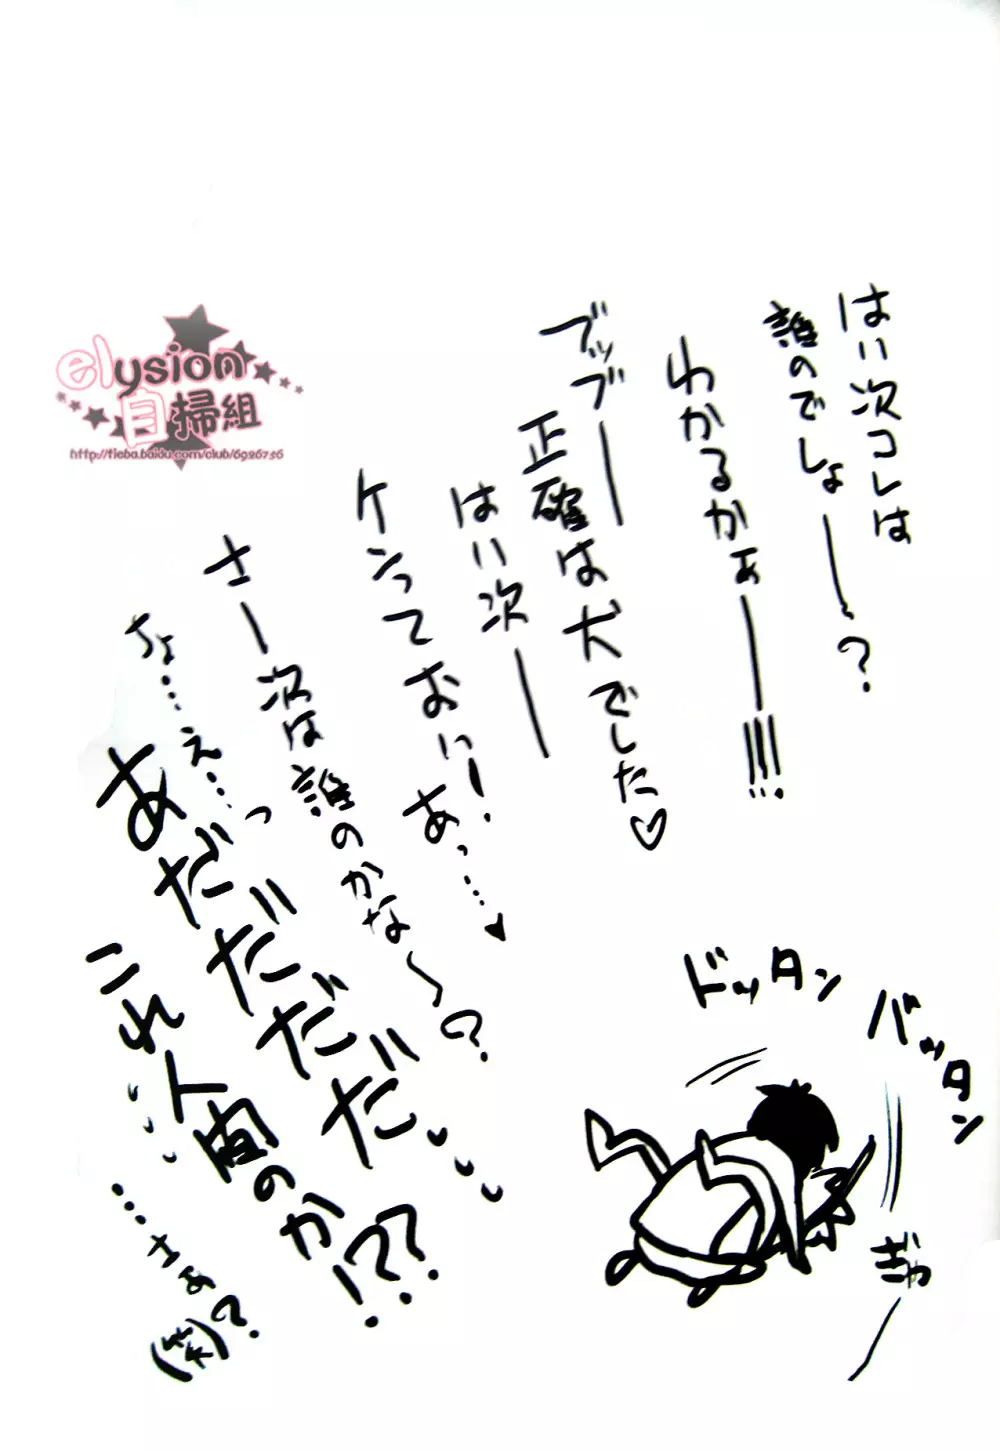 はい次コレは
誰のでしょーー?
わかるかぁーー!!!!
ブッブーー
正確は犬でした♡
はい次ーー
ケンっておい!
あっ…♥
さー次は誰のかな〜?
ちょ…え…っ
あだだだだだ
これ人間のか!??
…さぁ(笑)?
ドッタン
バッタン
ぎゃー
elysion
自掃組
http://tieba.baidu.com/club/6926756